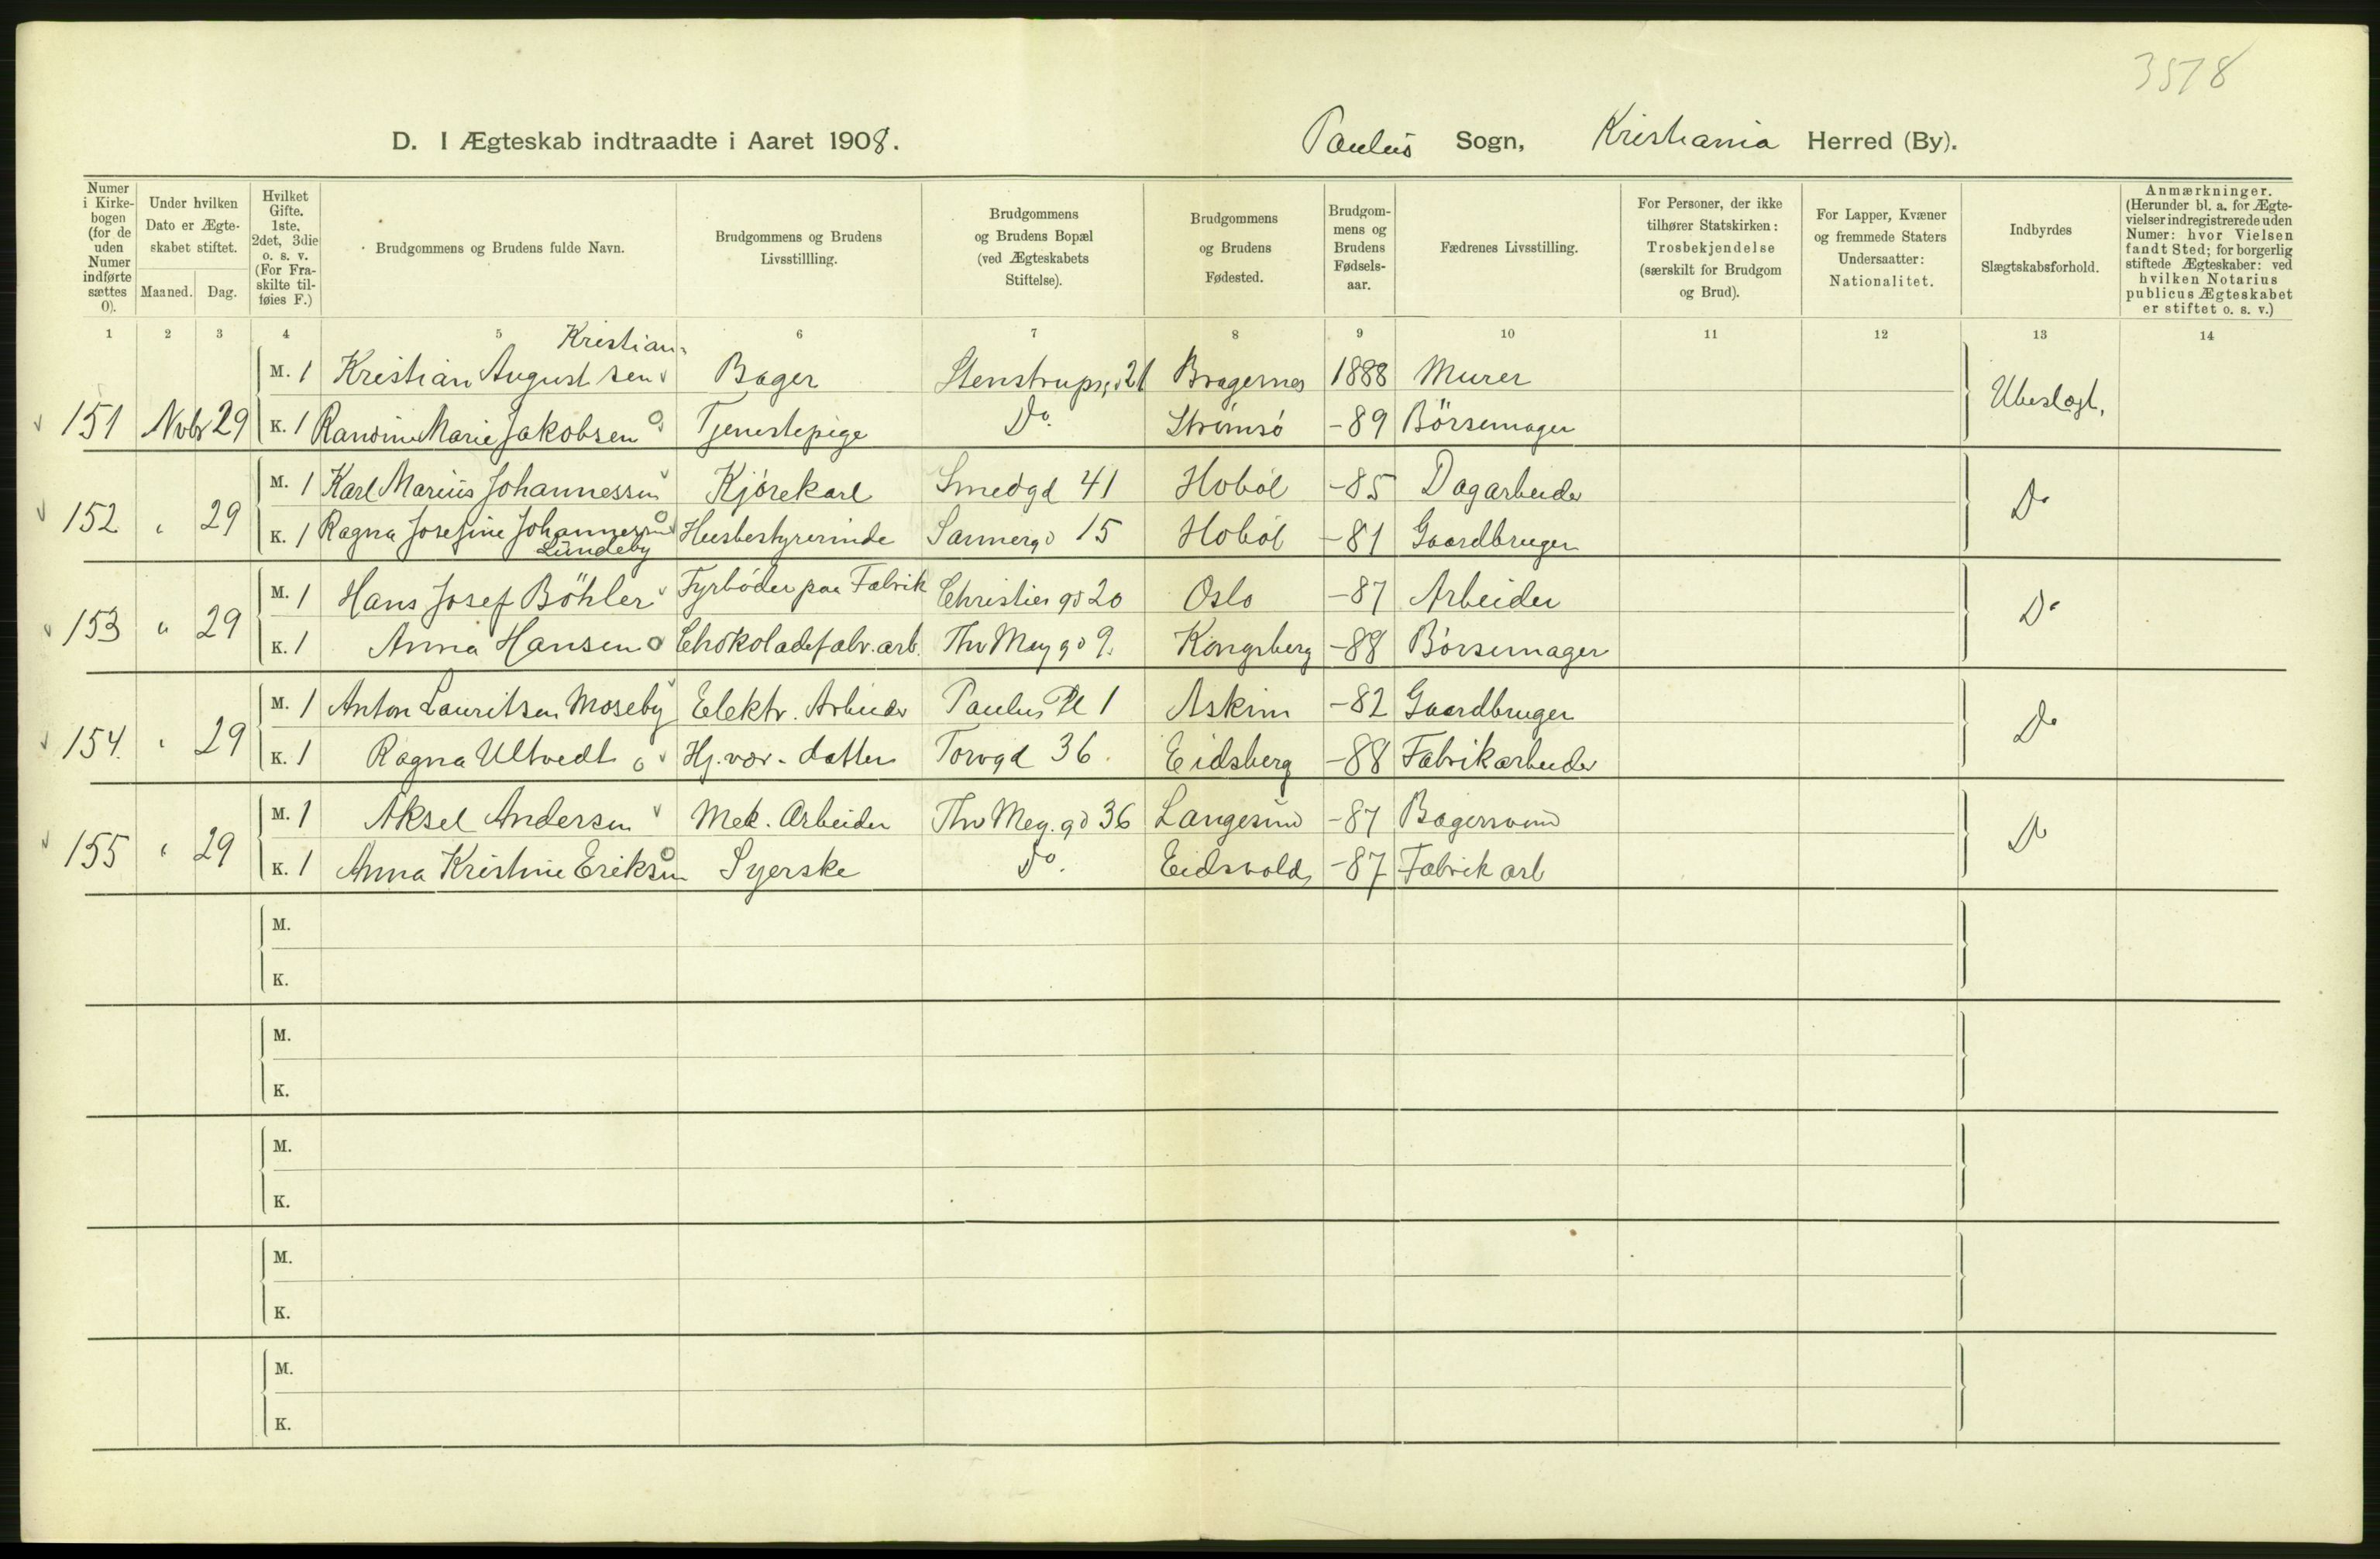 3578
D. I Ægteskab indtraadte i Aaret 1908. Paulus Sogn, Kristiania Herred (By).
Numer i Kirkebogen (for de uden Numer indførte sættes 0).
Under hvilken Dato er Ægteskabet stiftet.
Maaned. Dag.
Hvilket Gifte. 1ste, 2det, 3die o. s. v. (For Fraskilte tilføies F.)
Brudgommens og Brudens fulde Navn.
Brudgommens og Brudens Livsstillling.
Brudgommens og Brudens Bopæl (ved Ægteskabets Stiftelse).
Brudgommens og Brudens Fødested.
Brudgommens og Brudens Fødselsaar.
Fædrenes Livsstilling.
For Personer, der ikke tilhører Statskirken: Trosbekjendelse (særskilt for Brudgom og Brud).
For Lapper, Kvæner og fremmede Staters Undersaatter: Nationalitet.
Indbyrdes Slægtskabsforhold.
Anmærkninger. (Herunder bl. a. for Ægtevielser indregistrerede uden Numer: hvor Vielsen fandt Sted; for borgerlig stiftede Ægteskaber: ved hvilken Notarius publicus Ægteskabet er stiftet o. s. v.)
1 2 3 4 5 6 7 8 9 10 11 12 13 14
Kristian-
M. 1 Kristian August sen Bager Stenstrupg. 21 Bragernes 1888 Murer
151 Novbr 29 K. 1 Randine Marie Jakobsen Tjenestepige Do. Strømsö -89 Börsemager Ubeslægt.
M. 1 Karl Marius Johannessen Kjörekarl Smedgd 41 Haböl -85 Dagarbeider
152 " 29 K. 1 Ragna Josefine Johannessen Husbestyrerinde Sannergd 15 Hoböl -81 Gaardbruger Do
Lundeby
M. 1 Hans Josef Böhler Fyrböder paa Fabrik Christies gd 20 Oslo -87 Arbeider
153 " 29 K. 1 Anna Hansen Chokoladefabr. arb. Thv Mey gd 9. Kongsberg -88 Börsemager Do
M. 1 Anton Lauritsen Moseby Elektr. Arbeider Paulus Pl 1 Askim -82 Gaardbruger
154. " 29 K. 1 Ragna Ultvedt Hj. vær. datter Torvgd 36. Eidsberg -88 Fabrikarbeider Do
M. 1 Aksel Andersen Mek. Arbeider Thv Mey. gd 36 Langesund -87 Bagersvend
155 " 29 K. 1 Anna Kristine Eriksen Syerske Do. Eidsvold -87 Fabrik arb Do
M.
K.
M.
K.
M.
K.
M.
K.
M.
K.